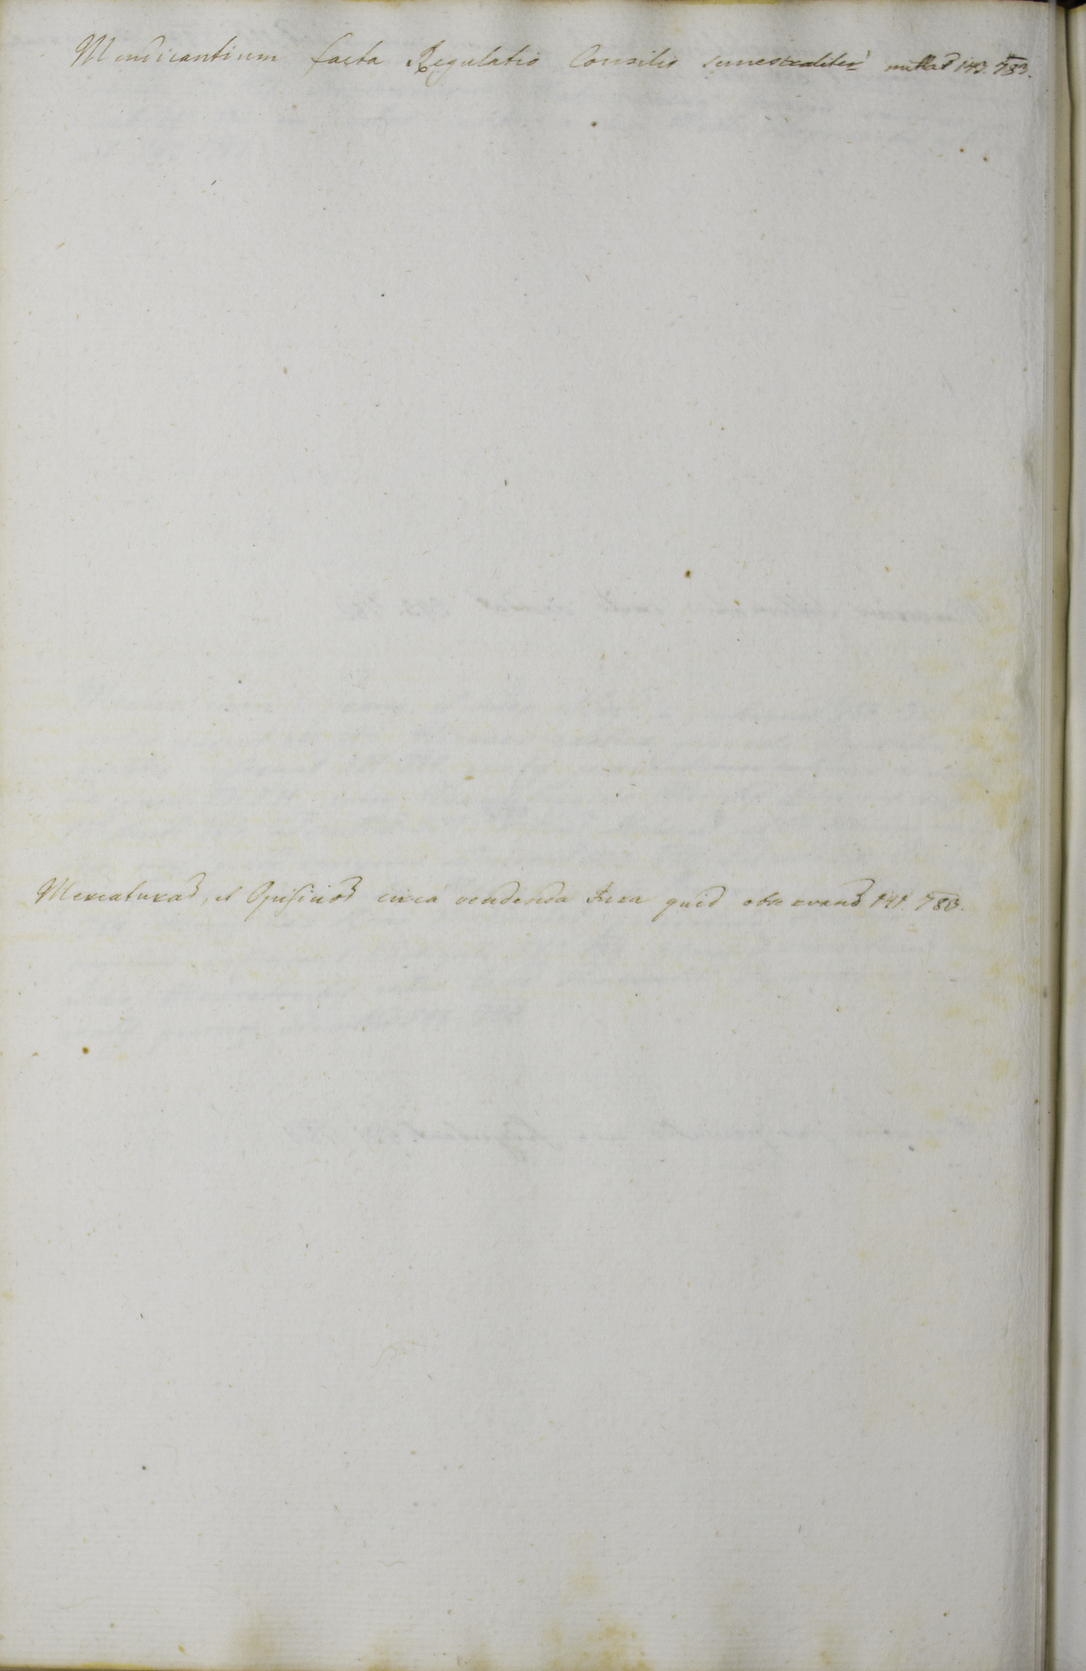 Mendicantium facta Regulatio Consilio semestraliter mittad 143. 783.
Mercaturad, et Opificiod circa vendenda Fera quid observand 141. 783.